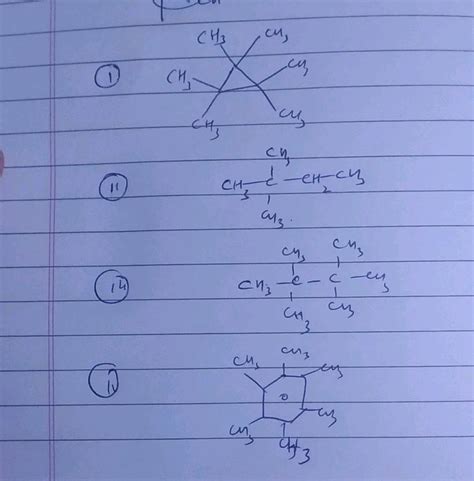 CH3 CH3
① CH3 CH3
CH3 CH3
CH3
⑪ CH3 — C — CH2 — CH3
CH3.
CH3 CH3
CH3 — C — C — CH3
CH3 CH3
CH3 CH3 CH3
CH3 CH3
CH3